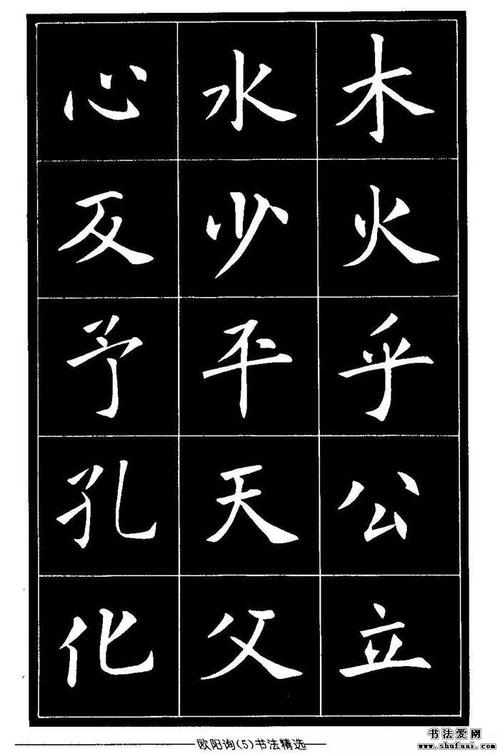 木火乎公立
水少平天父
心反予孔化
欧阳询(5)书法精选
书法爱网
www.shufaai.com